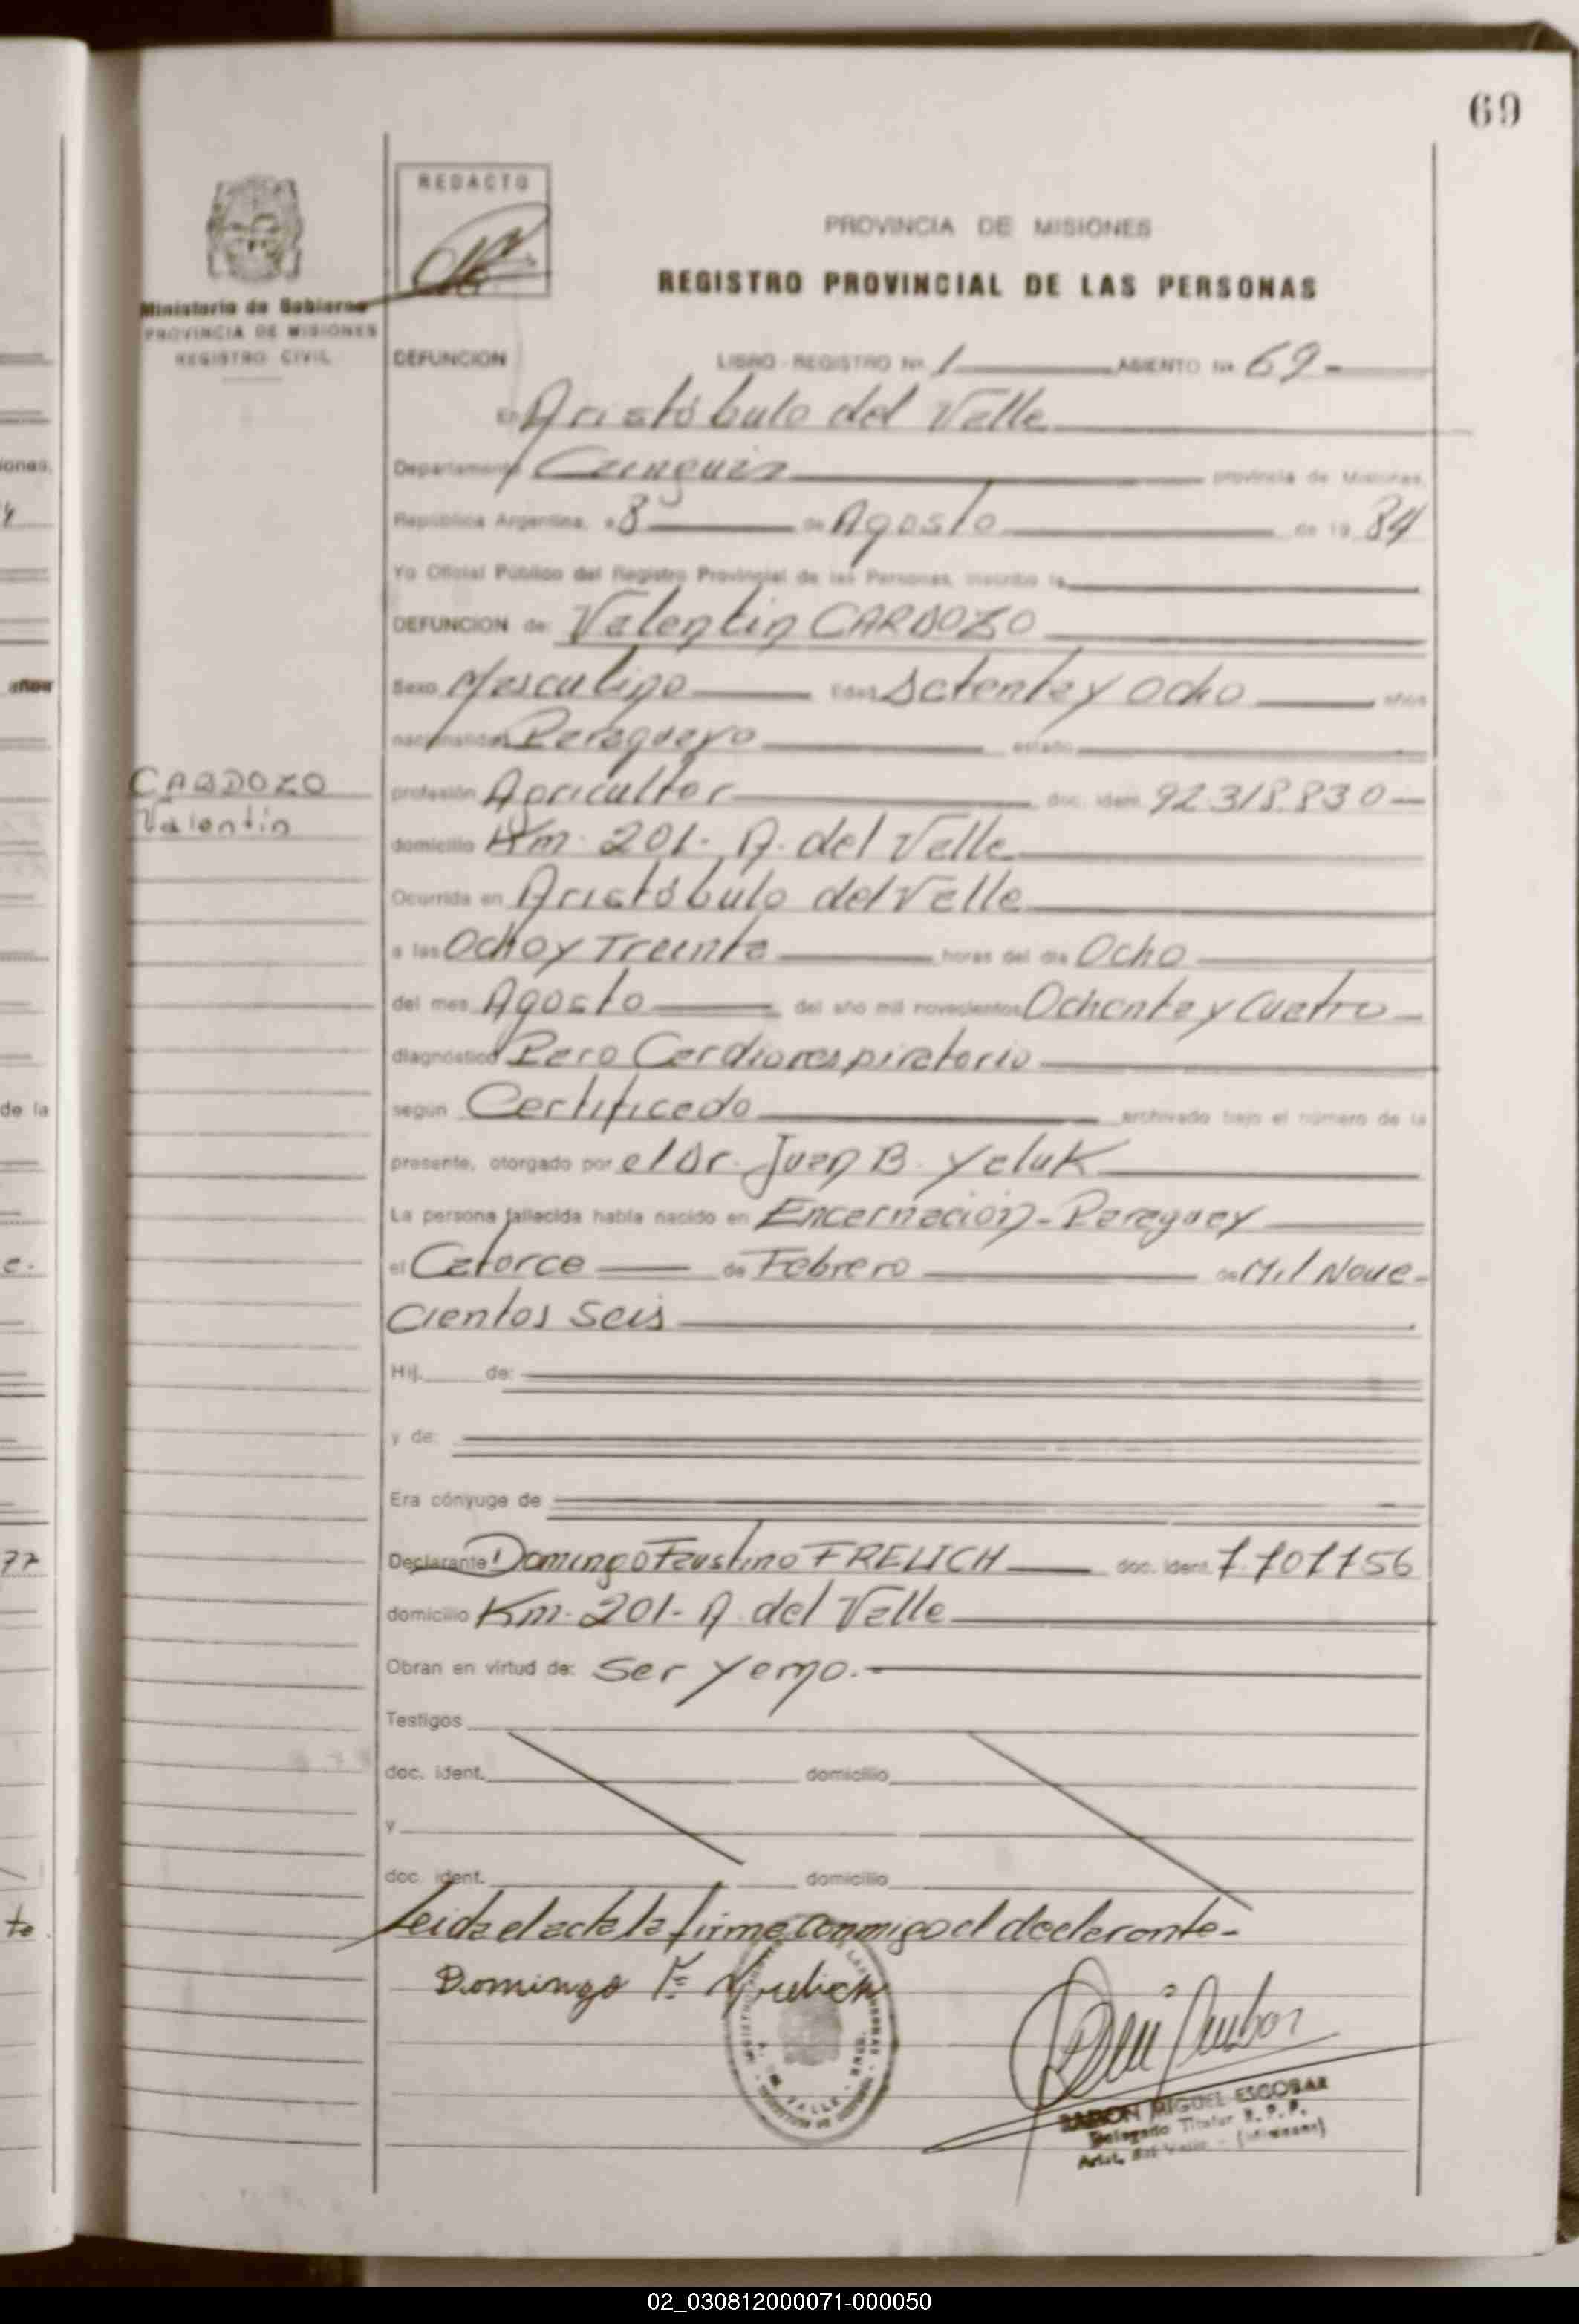 69
REDACTO
PROVINCIA DE MISIONES
REGISTRO PROVINCIAL DE LAS PERSONAS
Ministerio de Gobierno
PROVINCIA DE MISIONES
REGISTRO CIVIL
DEFUNCION LIBRO REGISTRO Nº 1 ASIENTO Nº 69-
En Aristóbulo del Valle
Departamento Cainguás provincia de Misiones,
República Argentina, a 8 de Agosto de 19 84
Yo Oficial Público del Registro Provincial de las Personas, inscribo la
DEFUNCION de: Valentin CARDOZO
Sexo Masculino Edad Setenta y Ocho años
nacionalidad Paraguayo estado
CARDOZO
Valentín
profesión Agricultor doc. ident. 92.318.830-
domicilio Km. 201. A. del Valle
Ocurrida en Aristóbulo del Valle
a las Ocho y Treinta horas del día Ocho
del mes Agosto del año mil novecientos Ochenta y Cuatro-
diagnóstico Paro Cardiorespiratorio
según Certificado archivado bajo el número de la
presente, otorgado por el Dr. Juan B. Yaluk
La persona fallecida había nacido en Encarnación-Paraguay
el Catorce de Febrero de Mil Nove-
cientos Seis
Hij. de:
y de:
Era cónyuge de
Declarante: Domingo Faustino FRELICH doc. ident. 7.701756
domicilio Km. 201- A. del Valle
Obran en virtud de: Ser Yerno.-
Testigos
doc. ident. domicilio
y
doc. ident. domicilio
Leida el acta la firma conmigo el declarante-
Domingo F. Frelich
RAMON MIGUEL ESCOBAR
Delegado Titular R.P.P.
Arist. del Valle - (Misiones)
iones,
años
de la
77
te.
02_030812000071-000050